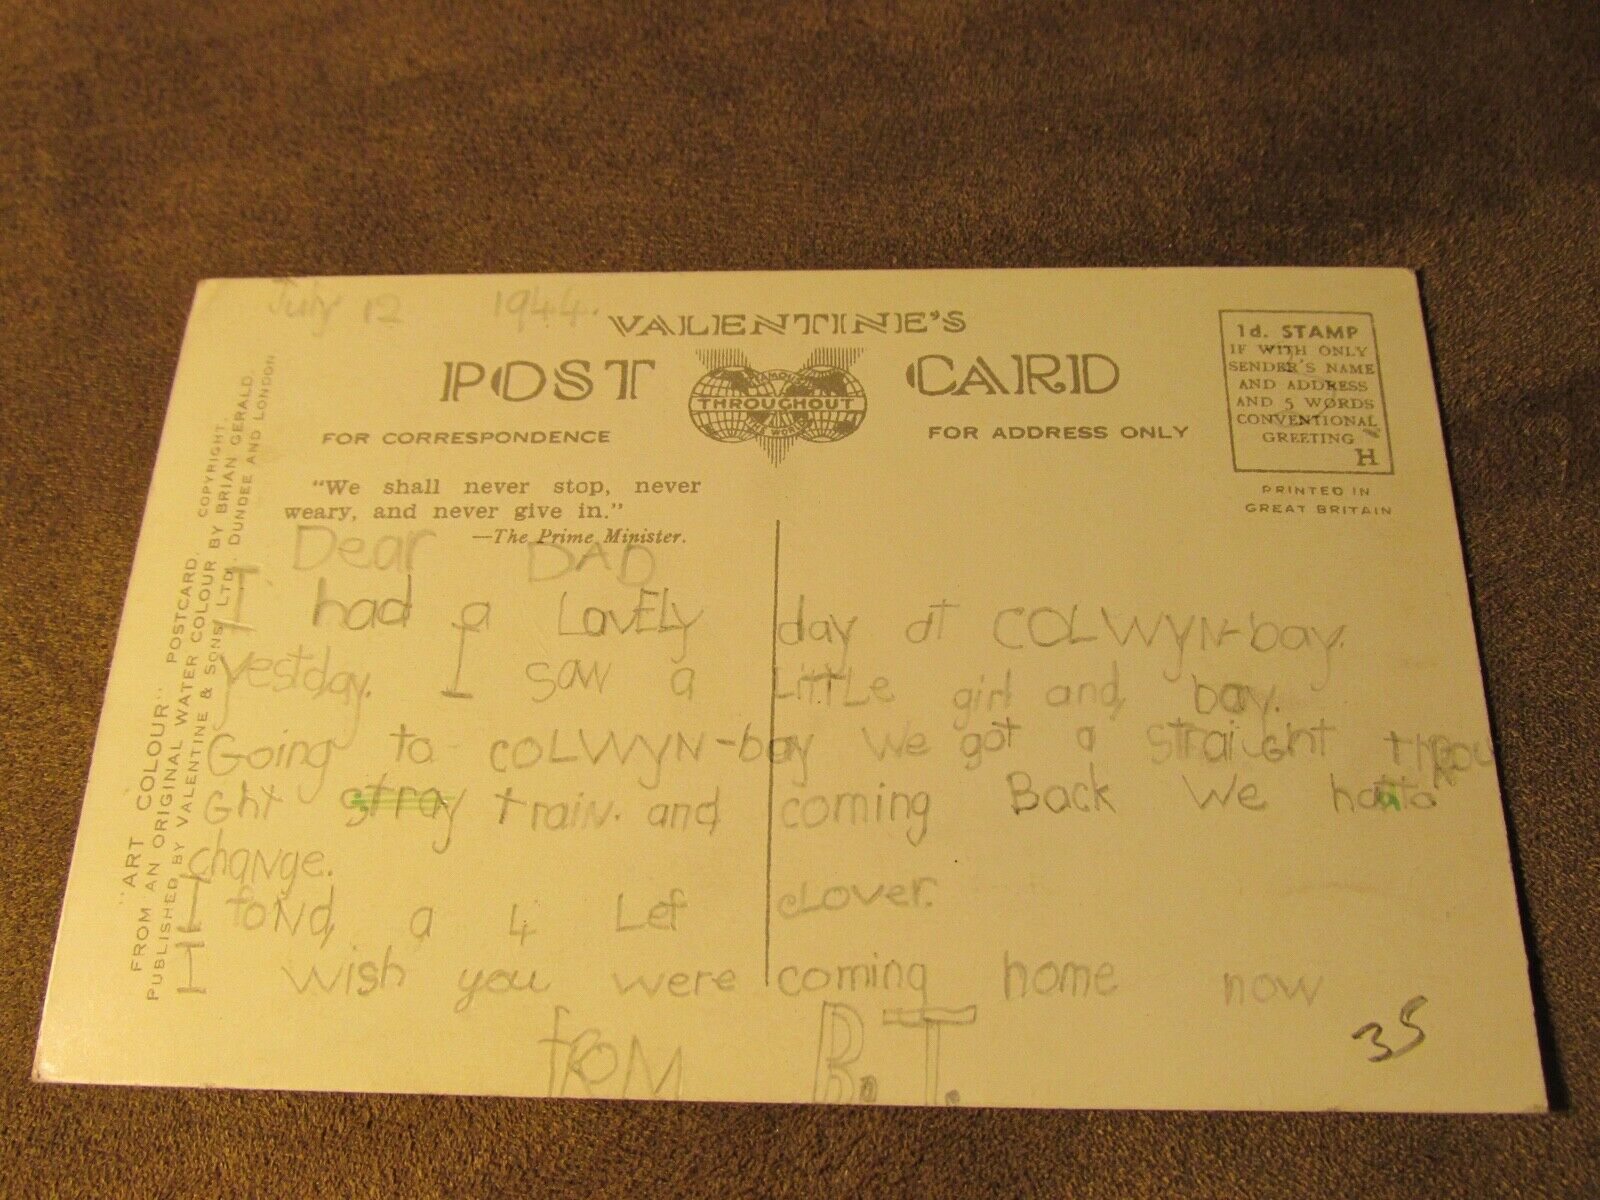 July 12 1944.
VALENTINE'S
POST CARD
FAMOUS
THROUGHOUT
THE WORLD
FOR CORRESPONDENCE
FOR ADDRESS ONLY
1d. STAMP
IF WITH ONLY
SENDER'S NAME
AND ADDRESS
AND 5 WORDS
CONVENTIONAL
GREETING
H
PRINTED IN
GREAT BRITAIN
"We shall never stop, never
weary, and never give in."
—The Prime Minister.
"ART COLOUR" POSTCARD. COPYRIGHT.
FROM AN ORIGINAL WATER COLOUR BY BRIAN GERALD.
PUBLISHED BY VALENTINE & SONS LTD. DUNDEE AND LONDON
Dear DAD
I had a LovELy day at COLWyN-bay.
yestday. I saw a LittLe girl and boy.
Going to COLWyN-bay We got a straight throu
ght stray train. and coming Back We had to
change.
I foNd a 4 Lef cLover.
I wish you were coming home now
fROM R.T.
35